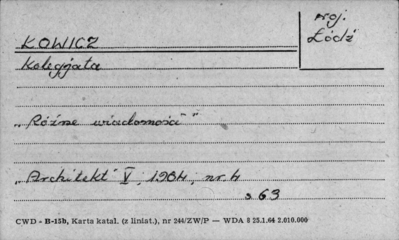 woj.
Łódź
ŁOWICZ
Kolegjata
„Różne wiadomości"
„Architekt" V, 1904, nr. 4
s 63
CWD - H-15b, Karta katal. (z liniat.), nr 244/ZW/P — WDA 8 25.1.64 2.010.000